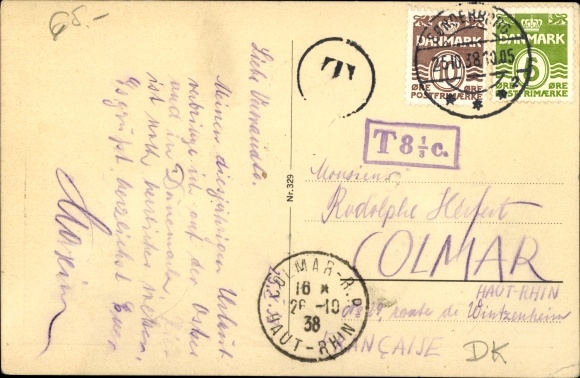 65.-
Liebe Verwandte.
Meinen diesjährigen Urlaub
verbringe ich auf der Ostsee
und in Dänemark.
ist noch
Es grüßt herzlichst Euer
Maxim
Nr. 329
T
T 8 1/3 c.
DANMARK
10
ØRE ØRE
POSTFRIMÆRKE
DANMARK
5
ØRE ØRE
POSTFRIMÆRKE
SØNDERBORG
25.10.38.10.05
Monsieur,
Rodolphe Herfert
COLMAR
HAUT-RHIN
route de Wintzenheim
COLMAR-R.P.
16 *
26-10
38
HAUT-RHIN
DK